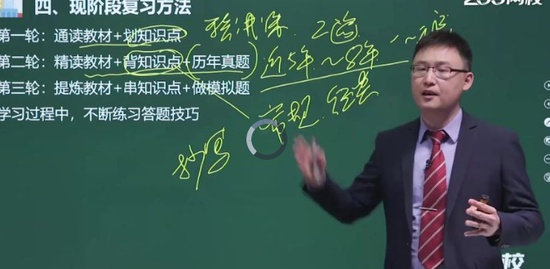 四、现阶段复习方法
第一轮：通读教材+划知识点
第二轮：精读教材+背知识点+历年真题
第三轮：提炼教材+串知识点+做模拟题
学习过程中，不断练习答题技巧
精讲课
近5年~8年
常规
抄写
网校
校